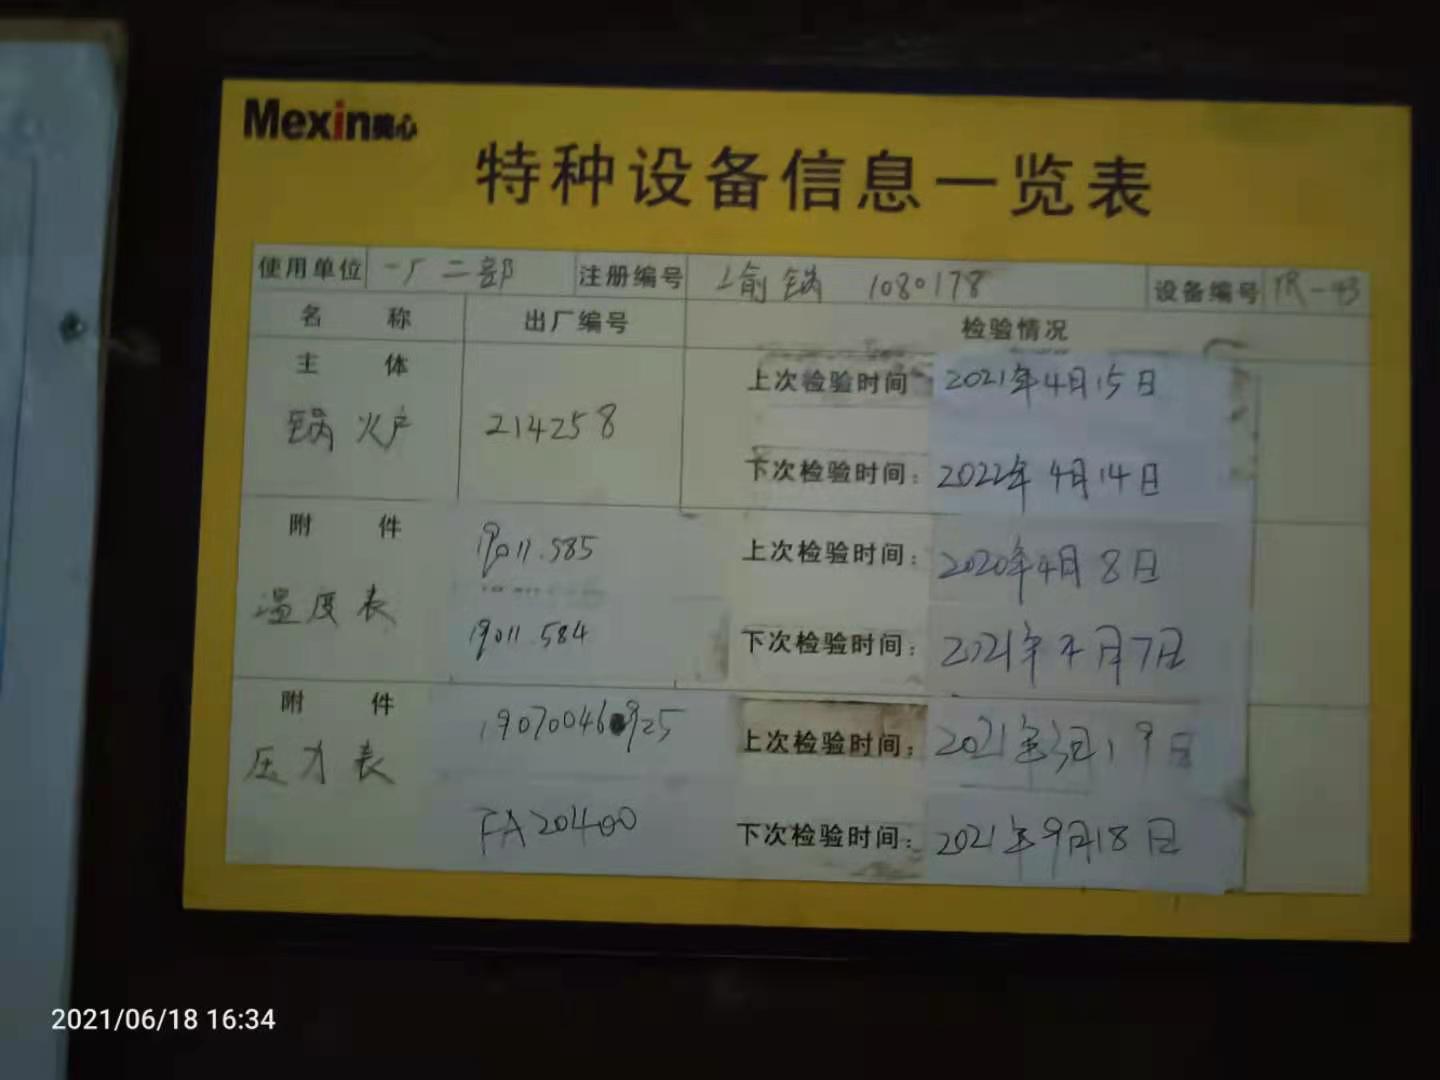 Mexin美心
特种设备信息一览表
使用单位 一厂二部 注册编号 渝锅 1080178 设备编号 YR-43
名 称 出厂编号 检验情况
主 体 上次检验时间 2021年4月15日
锅炉 214258
下次检验时间: 2022年4月14日
附 件 19011.585 上次检验时间: 2020年4月8日
温度表
19011.584 下次检验时间: 2021年4月7日
附 件 19070046 925 上次检验时间: 2021年3月19日
压力表
FA20400 下次检验时间: 2021年9月18日
2021/06/18 16:34